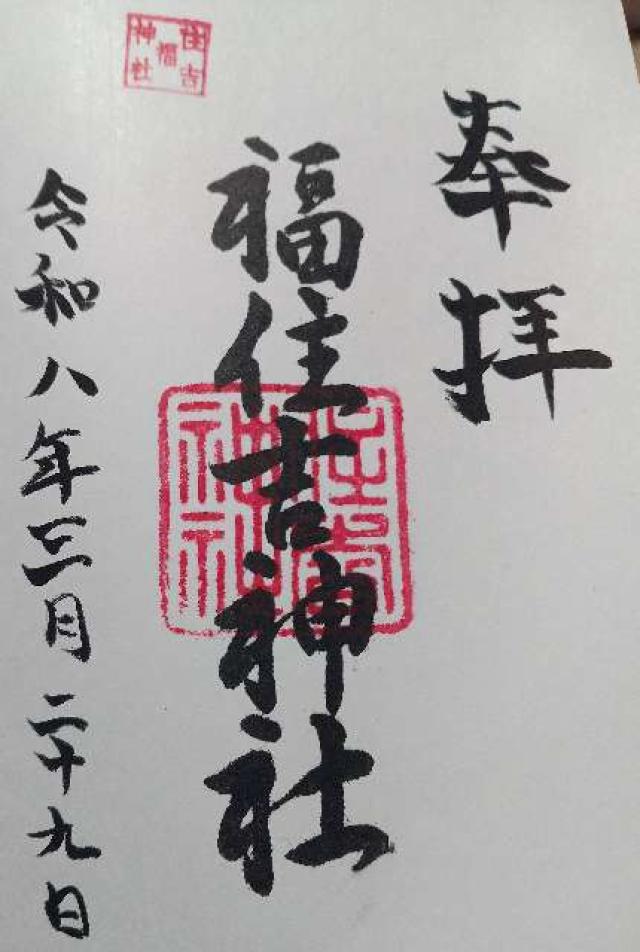 奉拝
福住吉神社
令和八年三月二十九日
住吉
福
神社